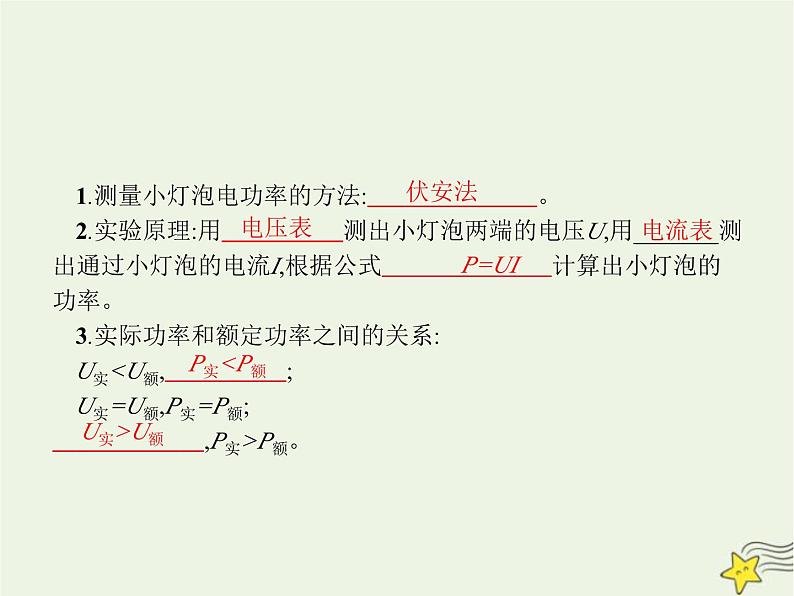 1.测量小灯泡电功率的方法:伏安法。
2.实验原理:用电压表测出小灯泡两端的电压U,用电流表测
出通过小灯泡的电流I,根据公式P=UI计算出小灯泡的
功率。
3.实际功率和额定功率之间的关系:
U实<U额,P实<P额;
U实=U额,P实=P额;
U实>U额,P实>P额。